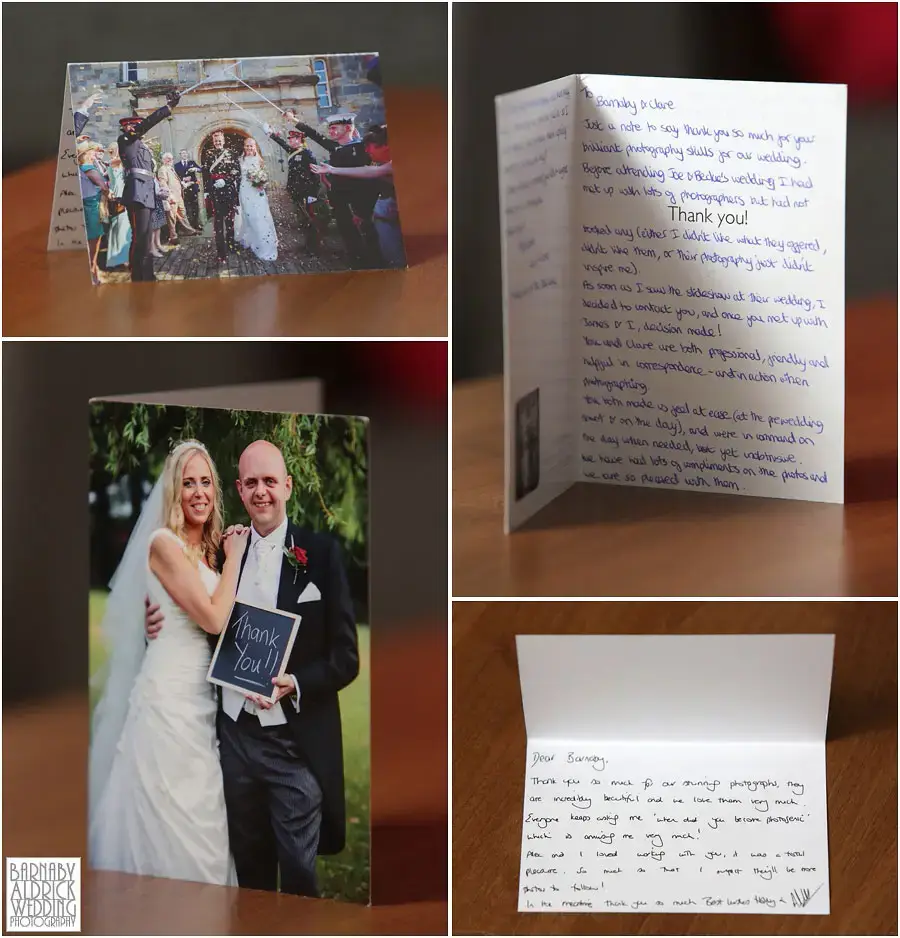 To
Barnaby & Clare
Just a note to say thank you so much for your
brilliant photography skills for our wedding.
Before attending Joe & Beckie's wedding I had
met up with lots of photographers but had not
Thank you!
booked any (either I didn't like what they offered,
didn't like them, or their photography just didn't
inspire me).
As soon as I saw the slideshow at their wedding, I
decided to contact you, and once you met up with
James & I, decision made!
You and Clare are both professional, friendly and
helpful in correspondence - and in action when
photographing.
You both made us feel at ease (at the prewedding
shoot & on the day), and were in command on
the day when needed, but yet unobtrusive.
We have had lots of compliments on the photos and
we are so pleased with them.
Thank
You!!
Dear Barnaby,
Thank you so much for our stunning photographs, they
are incredibly beautiful and we love them very much.
Everyone keeps asking me 'when did you become photogenic'
which is amusing me very much!
Alex and I loved working with you, it was a total
pleasure. So much so that I suspect they'll be more
photos to follow!
In the meantime thank you so much Best wishes
BARNABY
ALDRICK
WEDDING
PHOTOGRAPHY